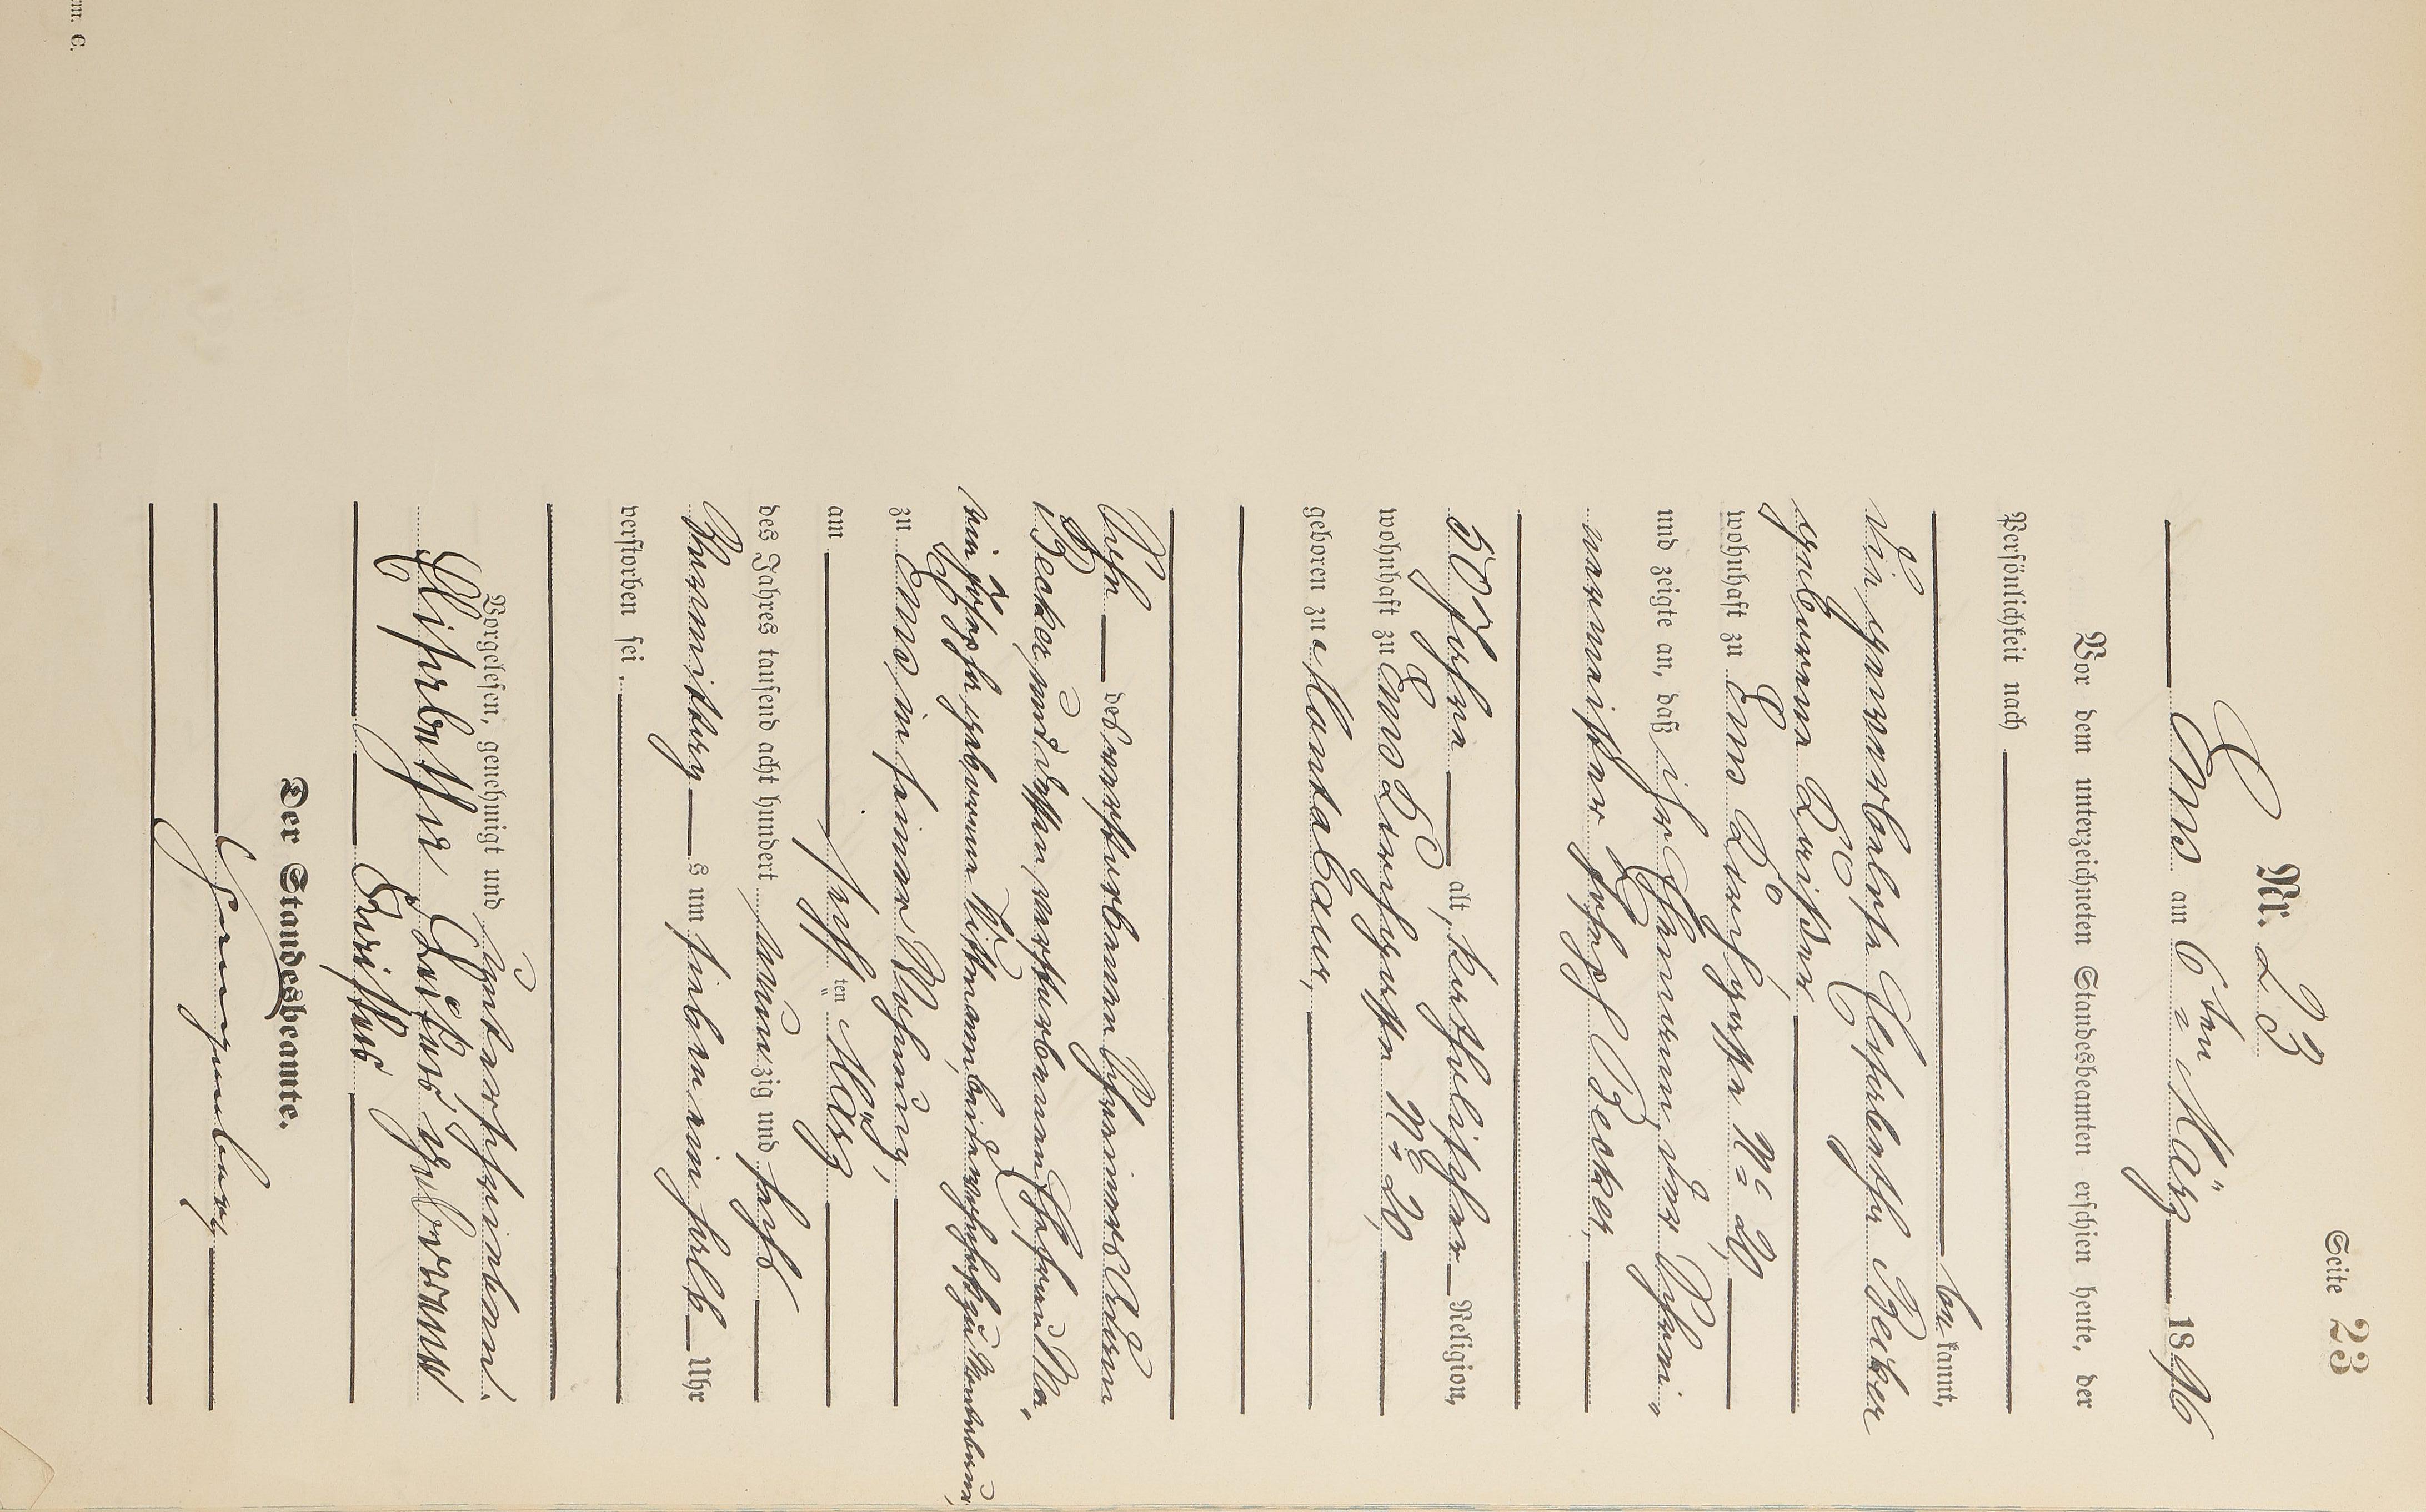 Seite 23
Nr. 23
Ems am 6ten März 1896
Vor dem unterzeichneten Standesbeamten erschien heute, der
Persönlichkeit nach
be kannt,
die gewerbelose Elisabetha Becker
geborene Reister,
wohnhaft zu Ems, No 20,
und zeigte an, daß ihr Ehemann, der Schrei-
nermeister Joseph Becker,
50 Jahre alt, katholischer Religion,
wohnhaft zu Ems No 20,
geboren zu Montabaur,
Sohn des verstorbenen Schreiners Adam
Becker, und dessen verstorbenen Ehefrau Ma-
geborenen beide wohnhaft zu Montabaur,
zu Ems, in seiner Wohnung,
am fünften März
des Jahres tausend acht hundert neunzig und sechs
Vormittags um sieben ein halb Uhr
verstorben sei.
Vorgelesen, genehmigt und unterschrieben
Elisabetha geborene
Reister
Der Standesbeamte.
m. C.